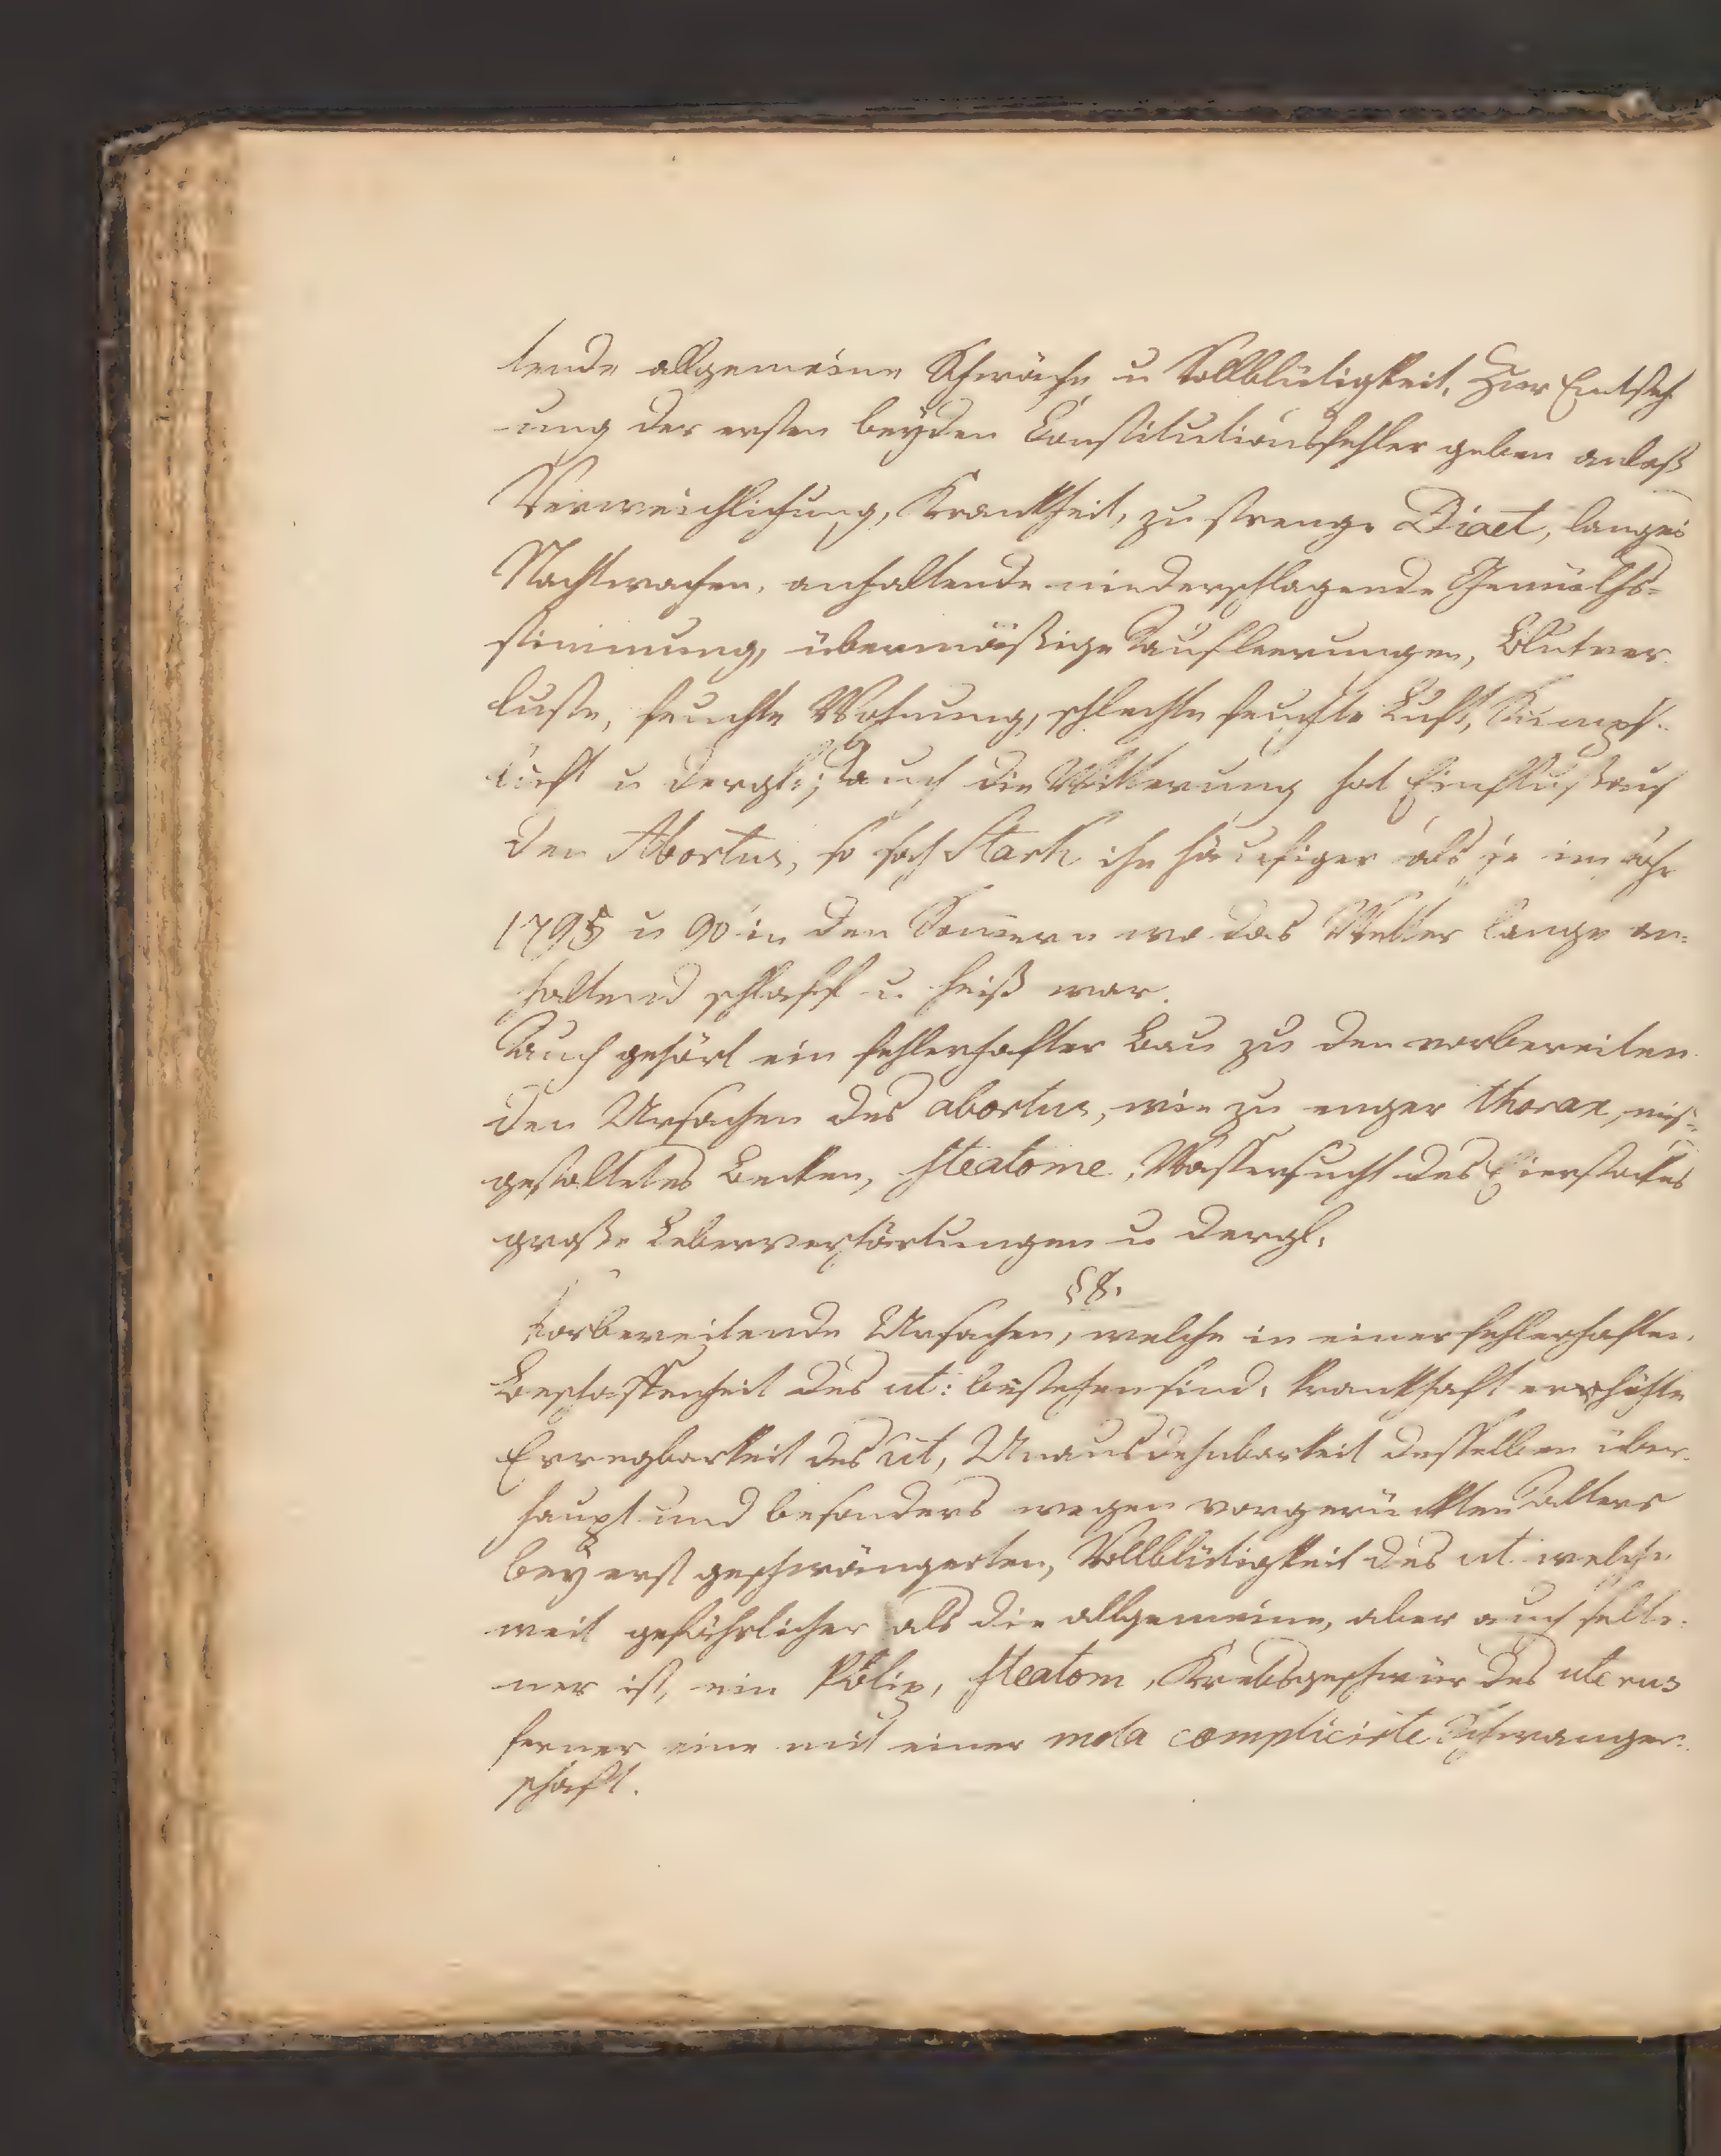 tende allgemeine Schwäche u Vollblütigkeit. Zur Entsteh
-ung der ersten beyden Constitutionsfehler geben anlaß
Verweichlichung, Krankheit, zu strenge Diaet, langes
Nachtwachen, anhaltende niederschlagende Gemüths-
stimmung, übermäßige Ausleerungen, Blutver-
luste, feuchte Wohnung, schlechte feuchte Luft, Sumpf-
luft u dergl:; auch die Witterung hat Einfluß auf
den Abortus, so sah Stark ihn häufiger als je im Jahr
1795 u 90 in den Sommern wo das Wetter lange an-
haltend schlaff u. heiß war.
Auch gehört ein fehlerhafter Bau zu den vorbereiten-
den Ursachen des abortus, wie zu enger thorax, mis-
gestaltetes Becken, Steatome, Wassersucht des Eierstockes
große Leberverhärtungen u dergl.
§ 8.
Vorbereitende Ursachen, welche in einer fehlerhaften
Beschaffenheit des ut: bestehen sind, krankhaft erhöhte
Erregbarkeit des ut, Unausdehnbarkeit desselben über-
haupt und besonders wegen vorgerückten Alters
bey erst geschwängerten, Vollblütigkeit des ut welche
weit gefährlicher als die allgemeine, aber auch selte-
ner ist, ein Polip, Steatom, Krebsgeschwür des uterus
ferner eine mit einer mola complicirte Schwanger-
schaft.